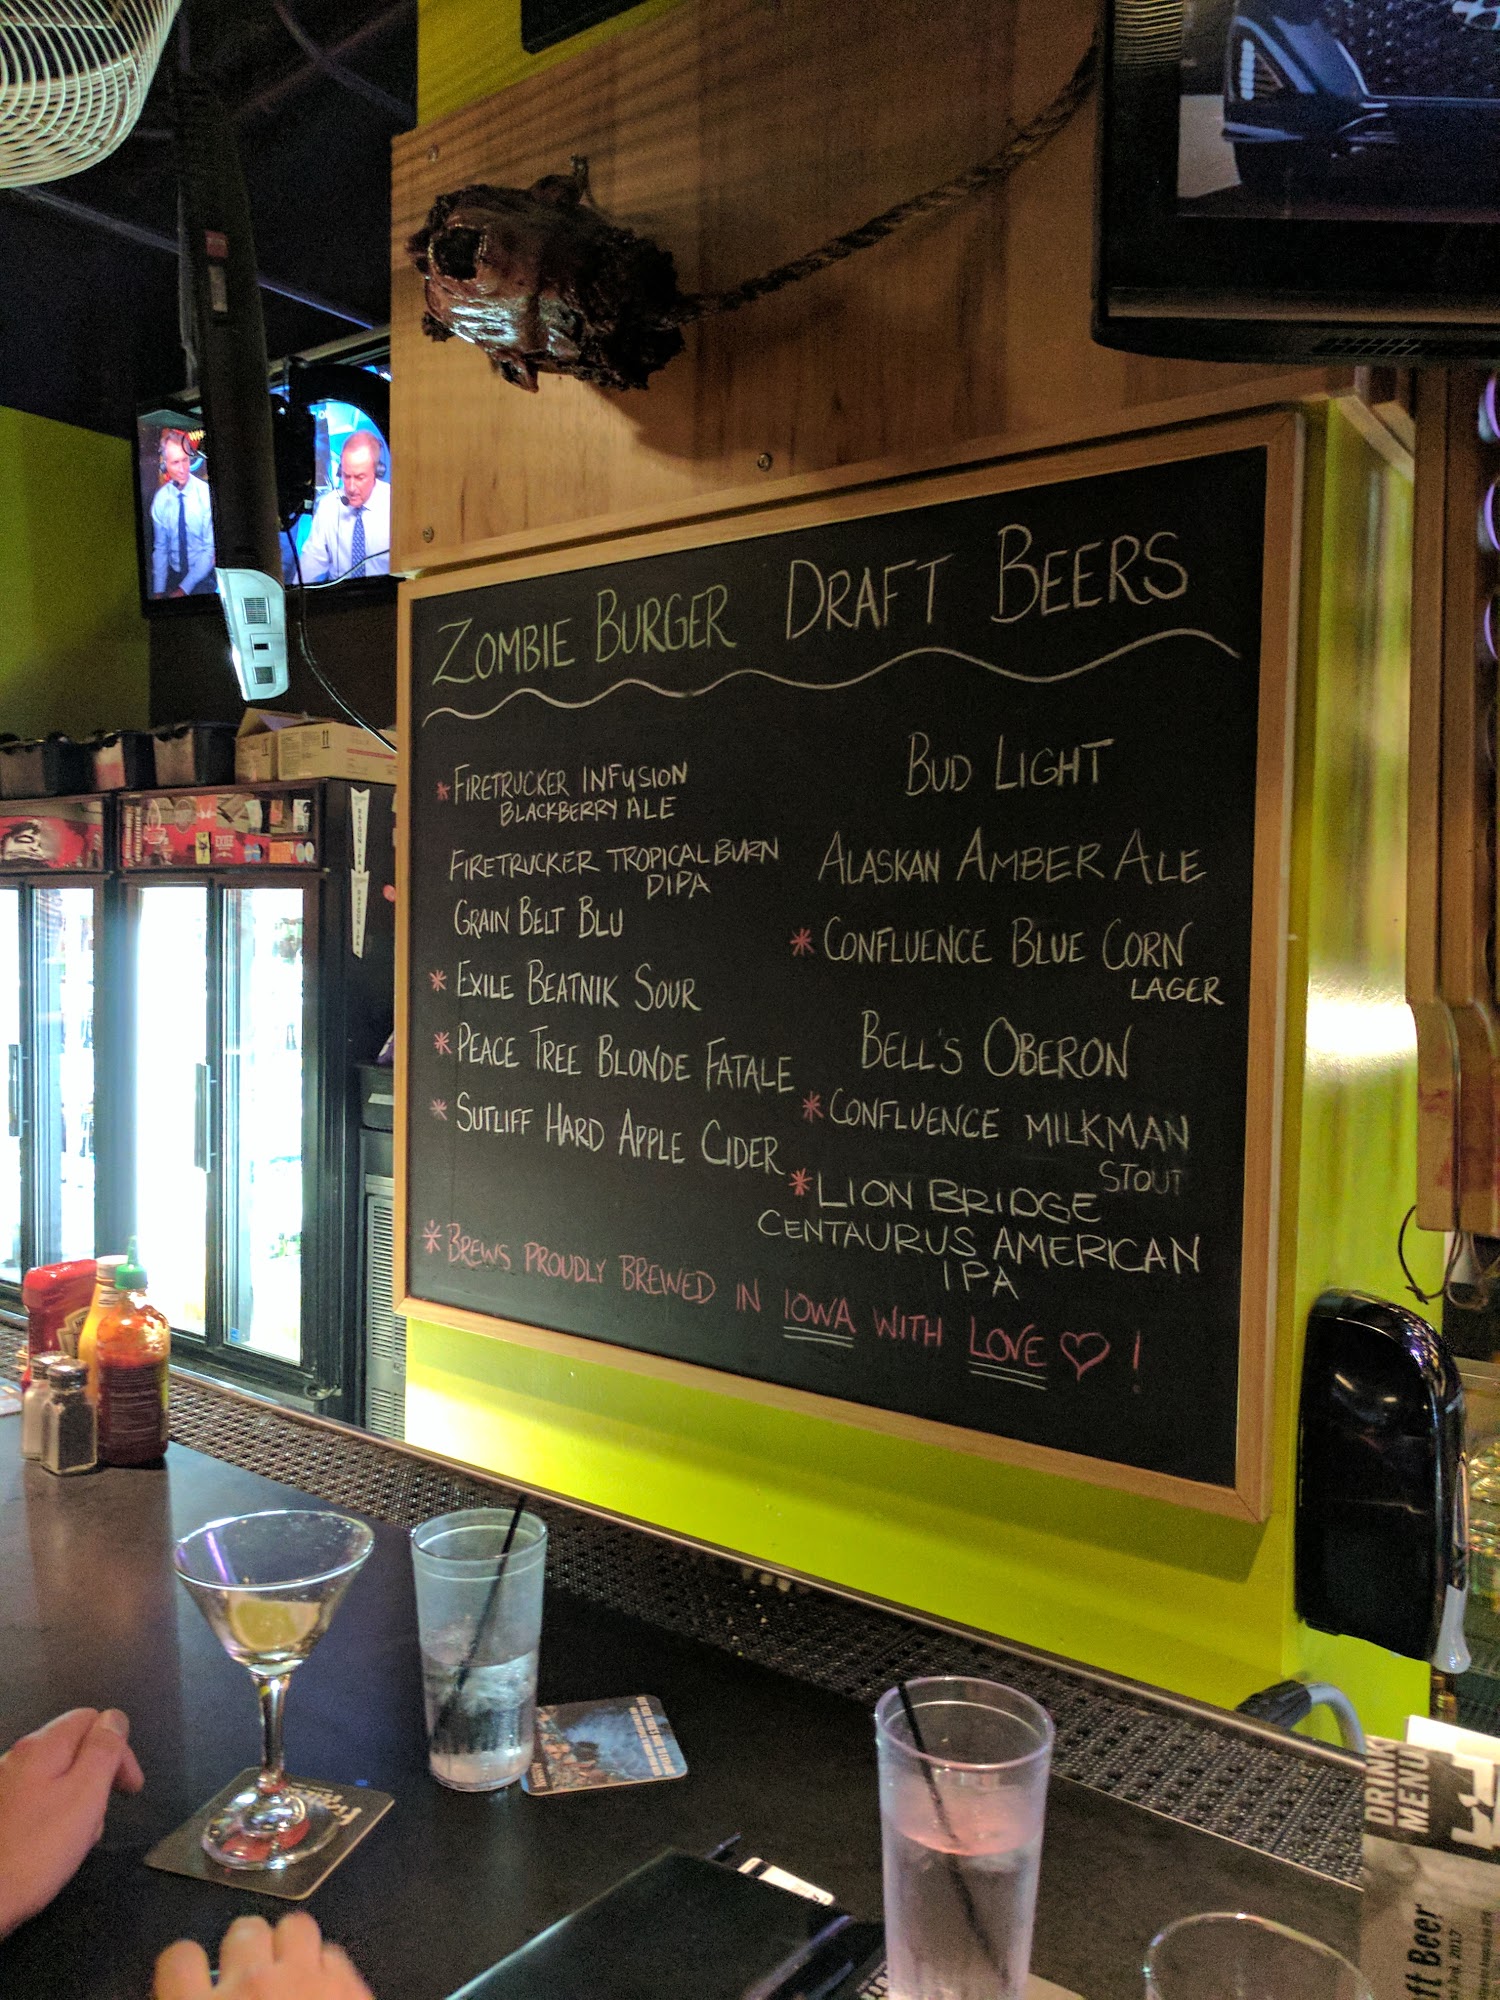 ZOMBIE BURGER DRAFT BEERS
* FIRETRUCKER INFUSION
BLACKBERRY ALE
FIRETRUCKER TROPICAL BURN
DIPA
GRAIN BELT BLU
* EXILE BEATNIK SOUR
* PEACE TREE BLONDE FATALE
* SUTLIFF HARD APPLE CIDER
BUD LIGHT
ALASKAN AMBER ALE
* CONFLUENCE BLUE CORN
LAGER
BELL'S OBERON
* CONFLUENCE MILKMAN
STOUT
* LION BRIDGE
CENTAURUS AMERICAN
IPA
* BREWS PROUDLY BREWED IN IOWA WITH LOVE ♡ !
DRINK
MENU
ft Beer
2017